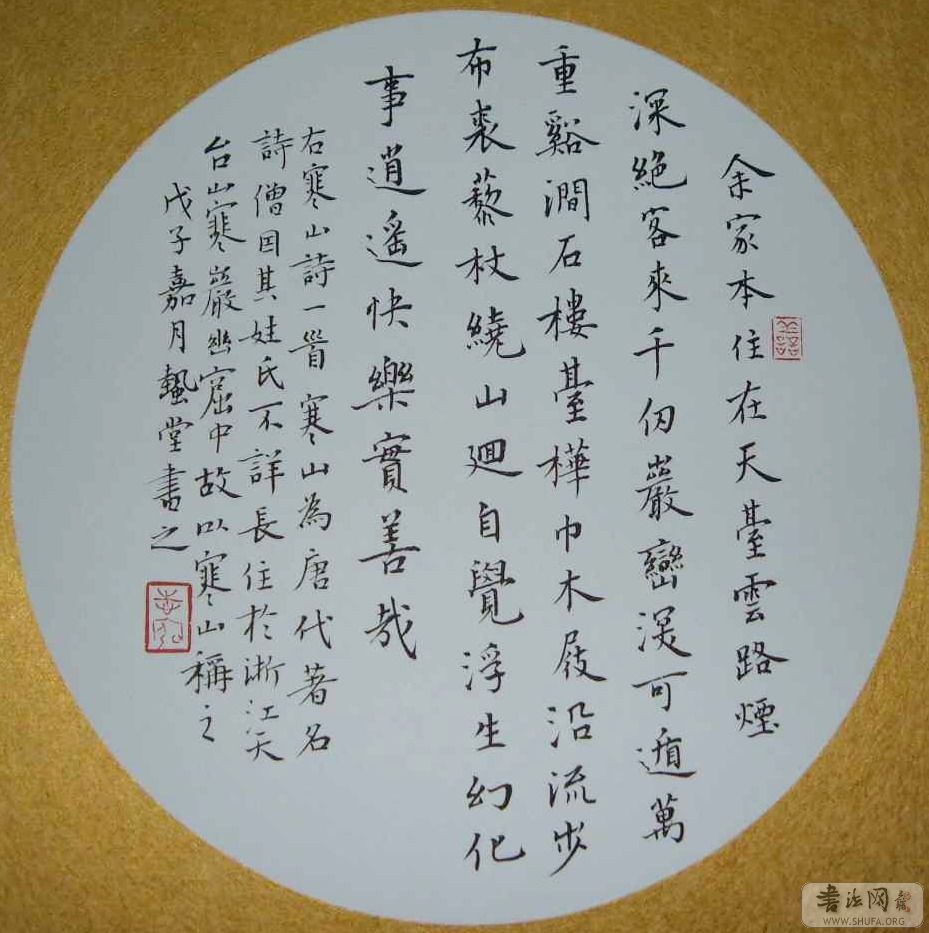 余家本住在天臺雲路煙
深絕客來千仞巖巒深可遁萬
重谿澗石樓臺樺巾木屐沿流步
布裘藜杖繞山廻自覺浮生幻化
事逍遥快樂實善哉
右寒山詩一首寒山為唐代著名
詩僧因其姓氏不詳長住於浙江天
台山寒巖幽窟中故以寒山稱之
戊子嘉月蟄堂書之
書法网
WWW.SHUFA.ORG